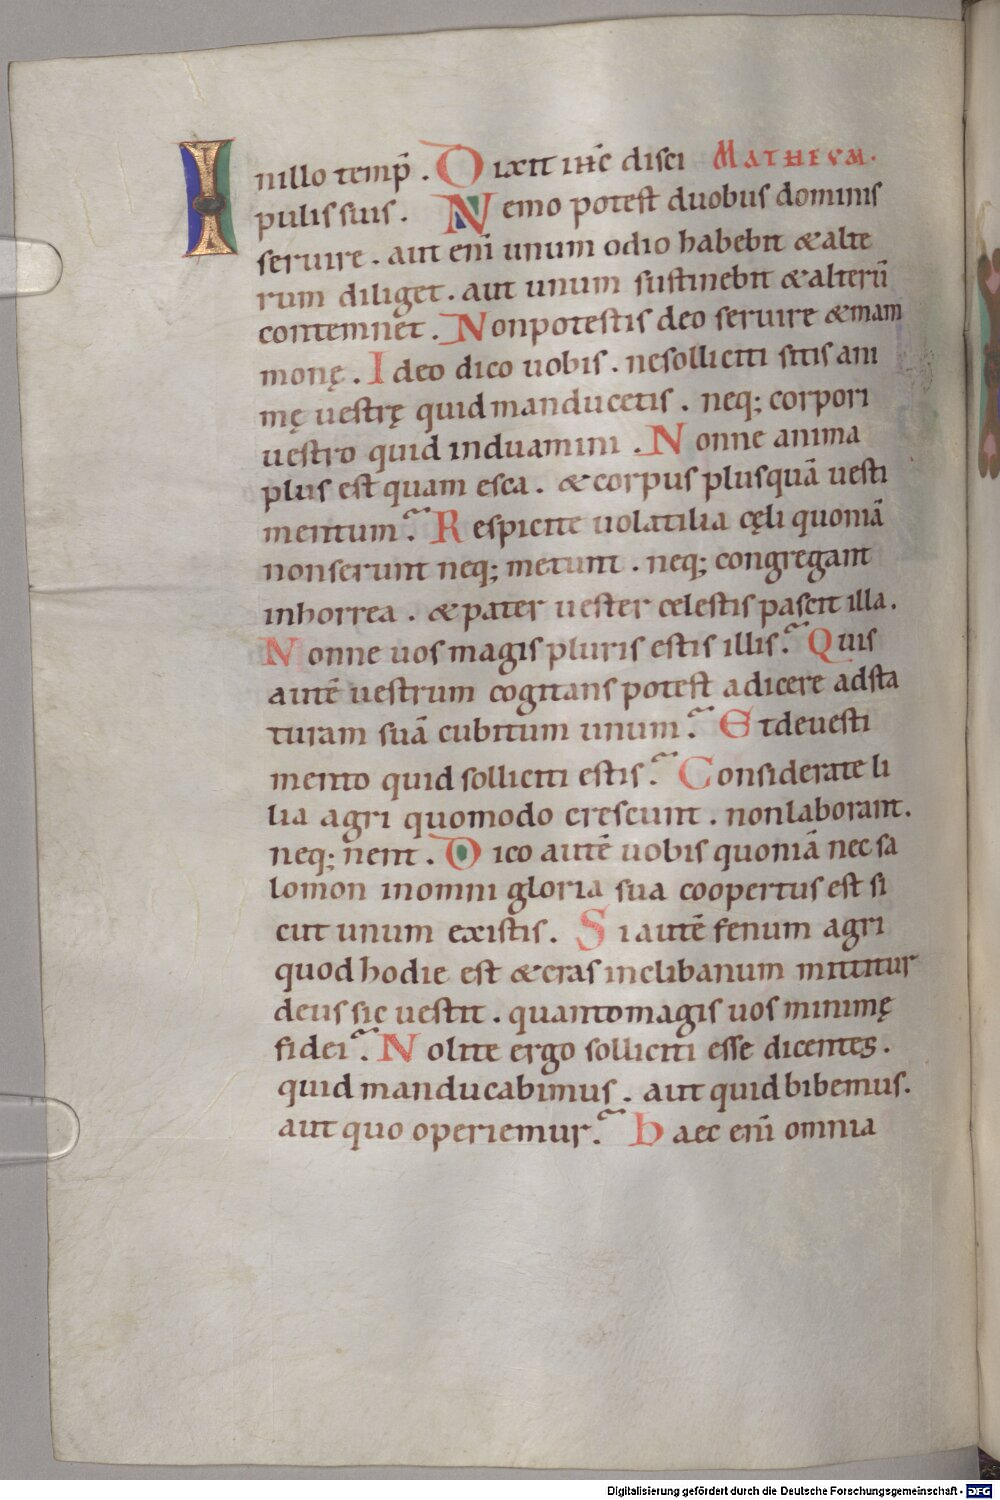 In illo temp̄. Dixit ih̄c disci MATHEVM.
pulis suis. Nemo potest duobus dominis
seruire. aut eni̅ unum odio habebit & alte
rum diliget. aut unum sustinebit & alterū
contemnet. Non potestis deo seruire & mam
monę. Ideo dico uobis. ne solliciti sitis ani
mę uestrę quid manducetis. neq; corpori
uestro quid induamini. Nonne anima
plus est quam esca. & corpus plus quā uesti
mentum? Respicite uolatilia cęli quoniā
non serunt neq; metunt. neq; congregant
in horrea. & pater uester celestis pascit illa.
Nonne uos magis pluris estis illis? Quis
autē uestrum cogitans potest adicere ad sta
turam suā cubitum unum? Et de uesti
mento quid solliciti estis? Considerate li
lia agri quomodo crescunt. non laborant.
neq; nent. Dico autē uobis quoniā nec sa
lomon in omni gloria sua coopertus est si
cut unum ex istis. Si autē fenum agri
quod hodie est & cras in clibanum mittitur
deus sic uestit. quanto magis uos minimę
fidei? Nolite ergo solliciti esse dicentes.
quid manducabimus. aut quid bibemus.
aut quo operiemur? Haec eni̅ omnia
Digitalisierung gefördert durch die Deutsche Forschungsgemeinschaft - DFG